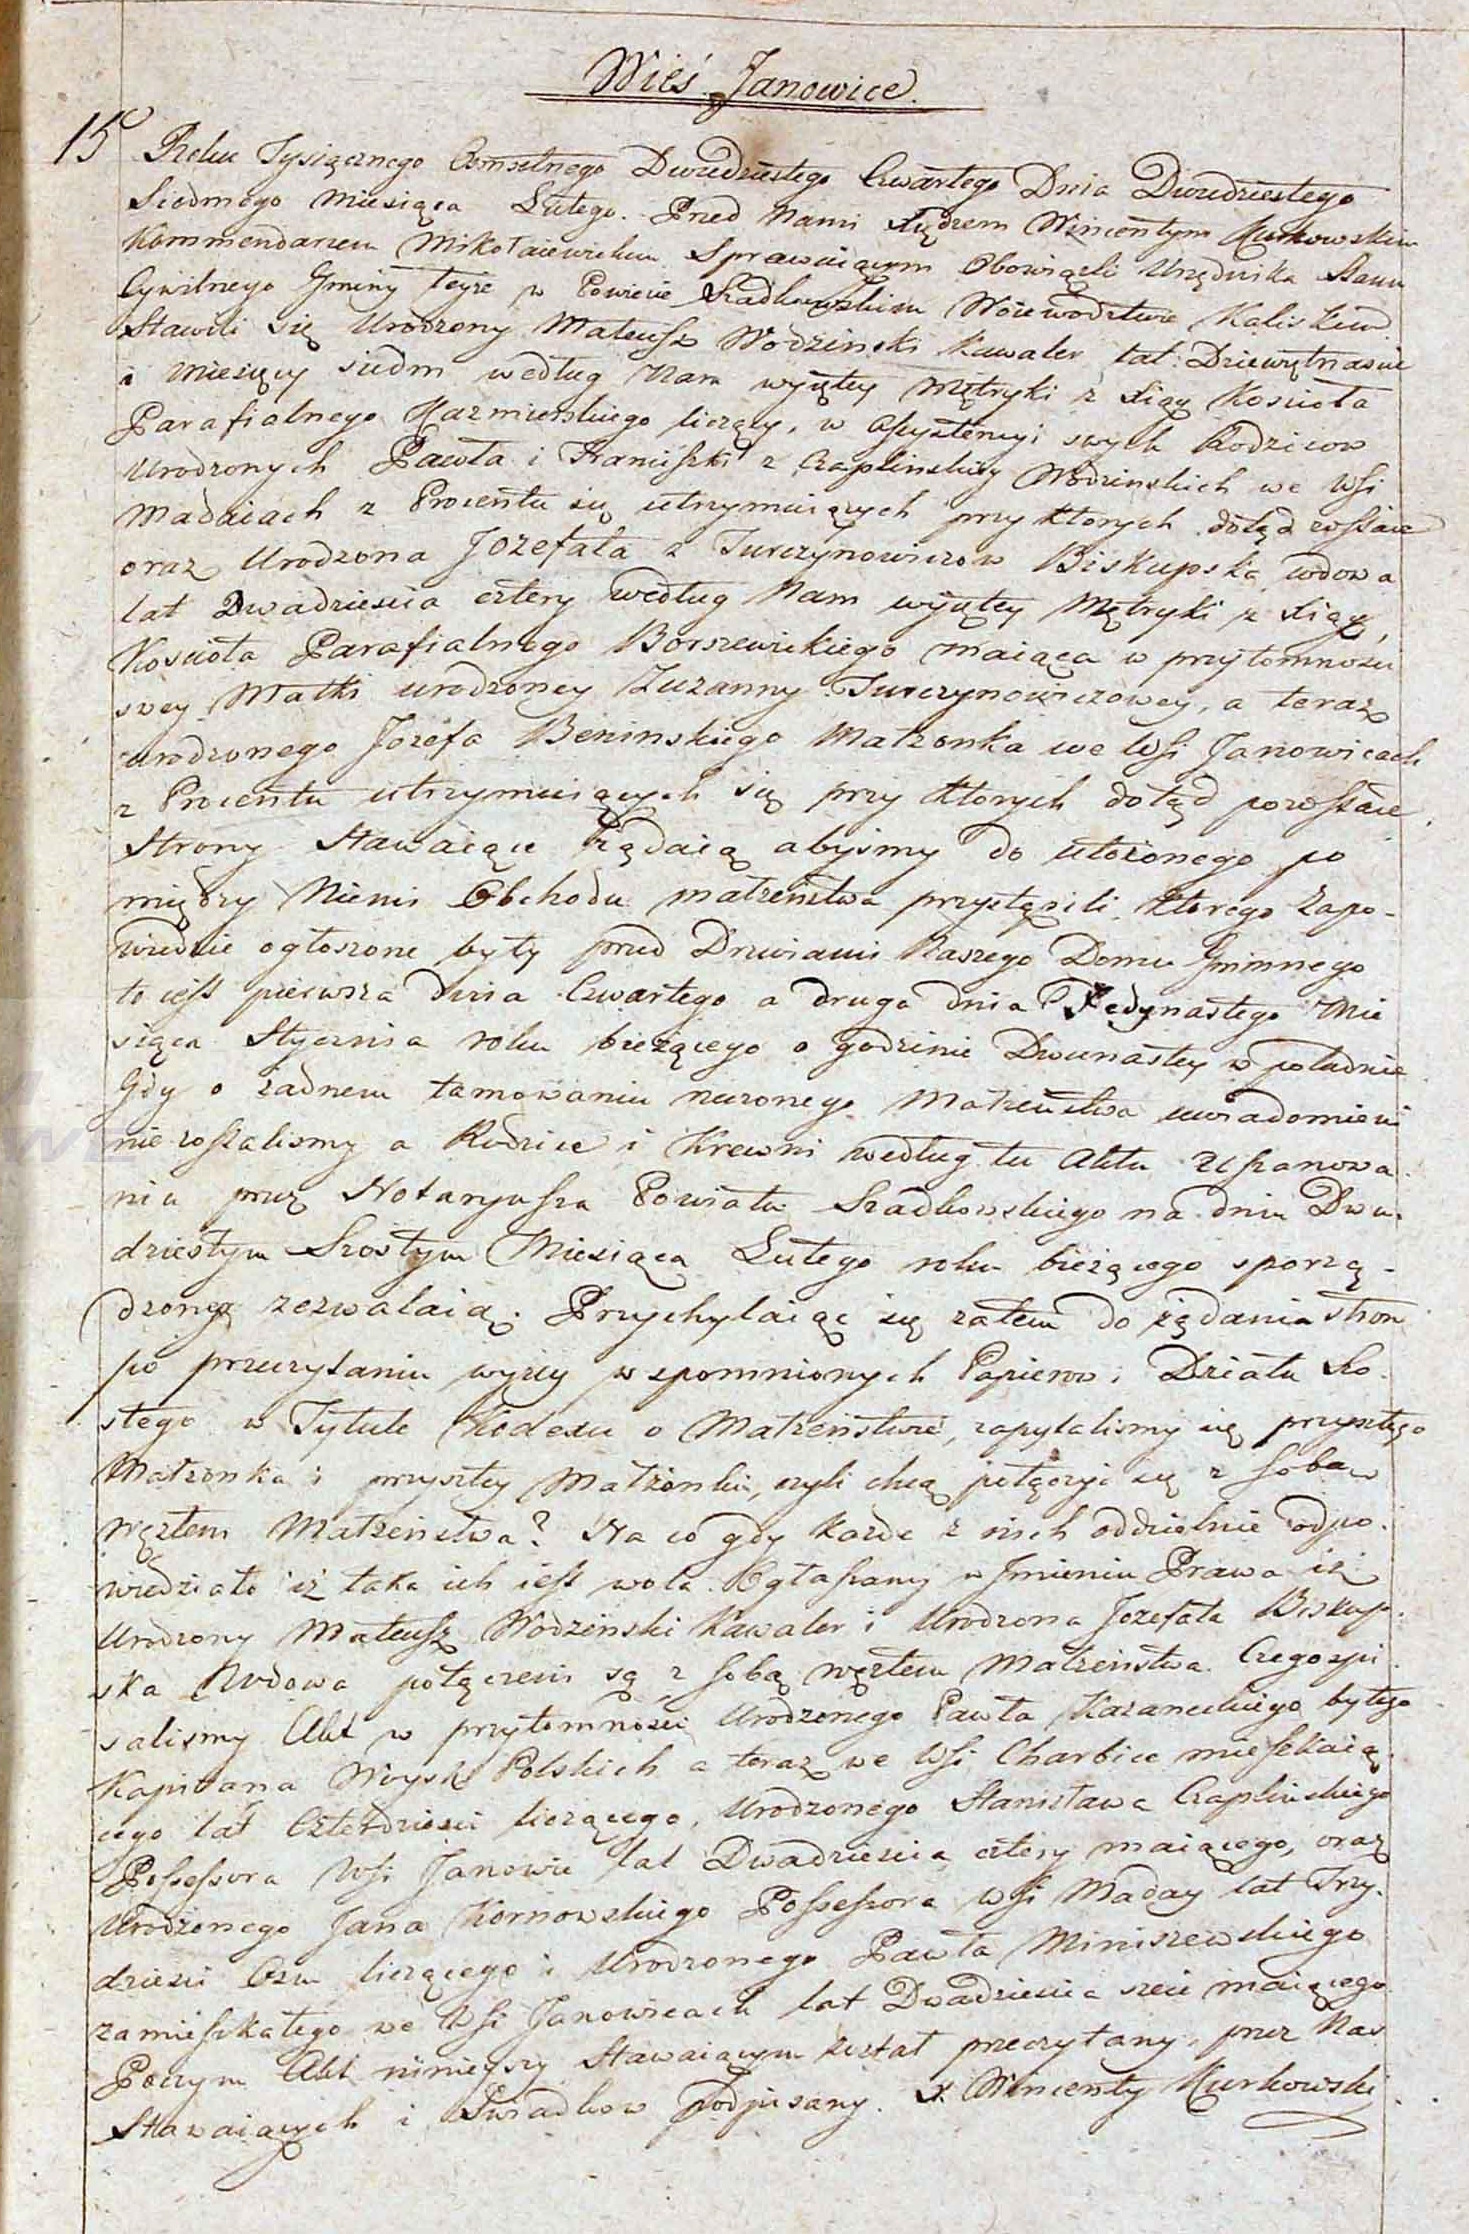 Wieś Janowice.
15 Roku Tysiącznego Osmsetnego Dwudziestego Czwartego Dnia Dwudziestego
Siodmego Miesiąca Lutego. Przed Nami Xiędzem Wincentym Kurkowskim
Kommendarzem Mikołaiewickim Sprawuiącym Obowiązki Urzędnika Stanu
Cywilnego Gminy teyże w Powiecie Szadkowskim Woiewodztwie Kaliskim
Stawili się Urodzony Mateusz Wodzinski Kawaler lat Dziewiętnascie
i Miesięcy siedm według Nam wyiętey Mętryki z Xiąg Koscioła
Parafialnego Kazmierskiego liczący, w Assystencyi swych Rodzicow
Urodzonych Pawła i Franciszki z Czaplinskich Wodzinskich we Wsi
Madaiach z Procentu się utrzymuiących przy ktorych dotąd zostaie
oraz Urodzona Jozefata z Jurczynowiczow Biskupska wdowa
lat Dwadziescia cztery według Nam wyiętey Mętryki z Xiąg
Koscioła Parafialnego Borszewickiego maiąca w przytomnosci
swey Matki urodzoney Zuzanny Jurczynowiczowey, a teraz
urodzonego Józefa Beninskiego Małżonka we Wsi Janowicach
z Procentu utrzymuiących się przy ktorych dotąd pozostaie.
Strony Stawaiące żądaią abysmy do ułożonego po
między Niemi Obchodu małżeństwa przystąpili, ktorego Zapo-
wiedzie ogłoszone były przed Drzwiami Naszego Domu Gminnego
to iest pierwsza dnia Czwartego a druga dnia Jedynastego Mie
siąca Stycznia roku bieżącego o godzinie Dwunastey w południe
Gdy o żadnem tamowaniu rzeczonego Małżeństwa uwiadomieni
nie zostalismy a Rodzice i Krewni według tu Aktu Uszanowa
nia przez Notaryusza Powiatu Szadkowskiego na dniu Dwu-
dziestym Szostym Miesiąca Lutego roku bieżącego sporzą-
dzonego zezwalaią. Przychylaiąc się zatem do żądania stron
po przeczytaniu wyżey wspomnionych Papierow i Działu Szo-
stego w Tytule Kodexu o Małżeństwie, zapytalismy się przyszłego
Małżonka i przyszłey Małżonki, czyli chcą połączyć się z sobą w
węzłem Małżeństwa? Na co gdy każde z nich oddzielnie odpo-
wiedziało iż taka ich iest wola. Ogłaszamy w Jmieniu Prawa iż
Urodzony Mateusz Wodzinski Kawaler i Urodzona Jozefata Biskup-
ska Wdowa połączeni są z sobą węzłem Małżeństwa. Czego spi
salismy Akt w przytomnosci Urodzonego Pawła Kazaneckiego byłego
Kapitana Woysk Polskich a teraz we Wsi Charbice mieszkaią
cego lat Czterdziesci liczącego, Urodzonego Stanisława Czaplinskiego
Possessora Wsi Janowic lat Dwadziescia cztery maiącego, oraz
Urodzonego Jana Kornowskiego Possessora Wsi Maday lat Trzy-
dziesci Osm liczącego i Urodzonego Pawła Miniszewskiego
zamieszkałego we Wsi Janowicach lat Dwadziescia szesc maiącego
Poczym Akt ninieyszy Stawaiącym został przeczytany, przez Nas
Stawaiących i Swiadkow podpisany. X. Wincenty Kurkowski